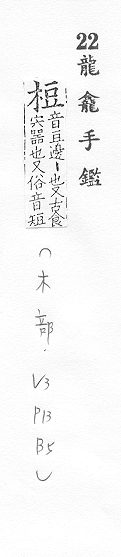 22龍龕手鑑
梪音豆邊丨也又古食
宍器也又俗音短
(木部.V3
P13
B5)